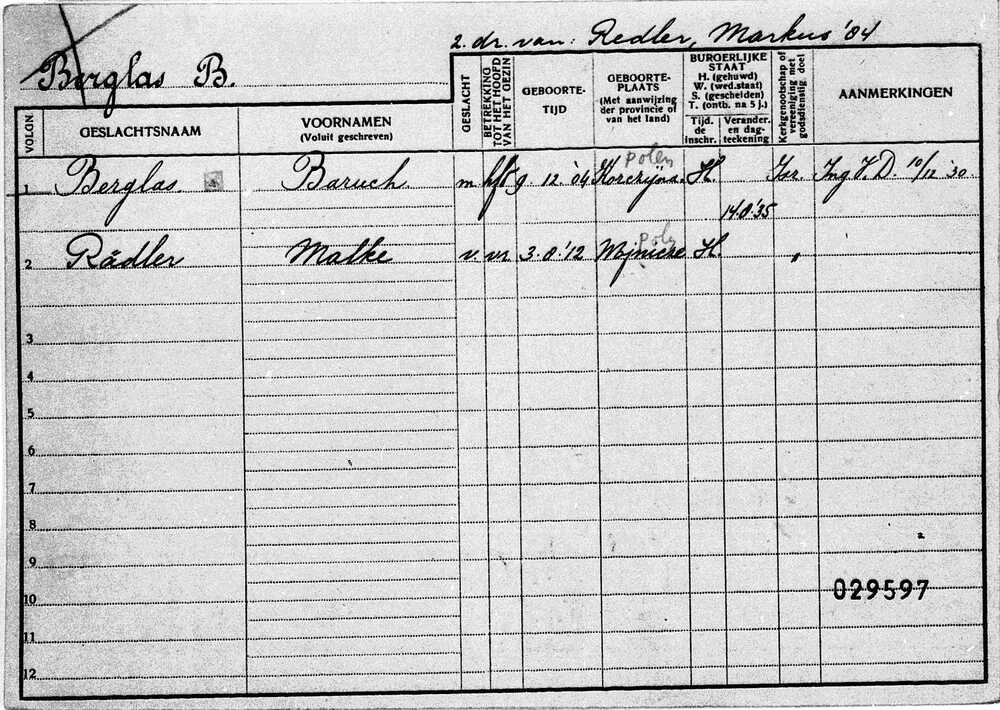 2. dr. van: Redler, Markus '04
Berglas B.
VOLGN
GESLACHTSNAAM
VOORNAMEN
(Voluit geschreven)
GESLACHT
BETREKKING
TOT HET HOOFD
VAN HET GEZIN
GEBOORTE-
TIJD
GEBOORTE-
PLAATS
(Met aanwijzing
der provincie of
van het land)
BURGERLIJKE
STAAT
H. (gehuwd)
W. (wed.staat)
S. (gescheiden)
T. (ontb. na 5 j.)
Tijd.
de
inschr.
Verander.
en dag-
teekening
Kerkgenootschap of
vereeniging met
godsdienstig doel
AANMERKINGEN
Polen
1 Berglas Baruch m. hfd 9. 12. '04 Korczyna. H. Isr. Ing V.D. 10/12 '30
14.8.'35
Polen
2 Rädler Malke v. vr. 3.8.'12 Wojnicze H. "
3
4
5
6
7
8
9
10
029597
11
12